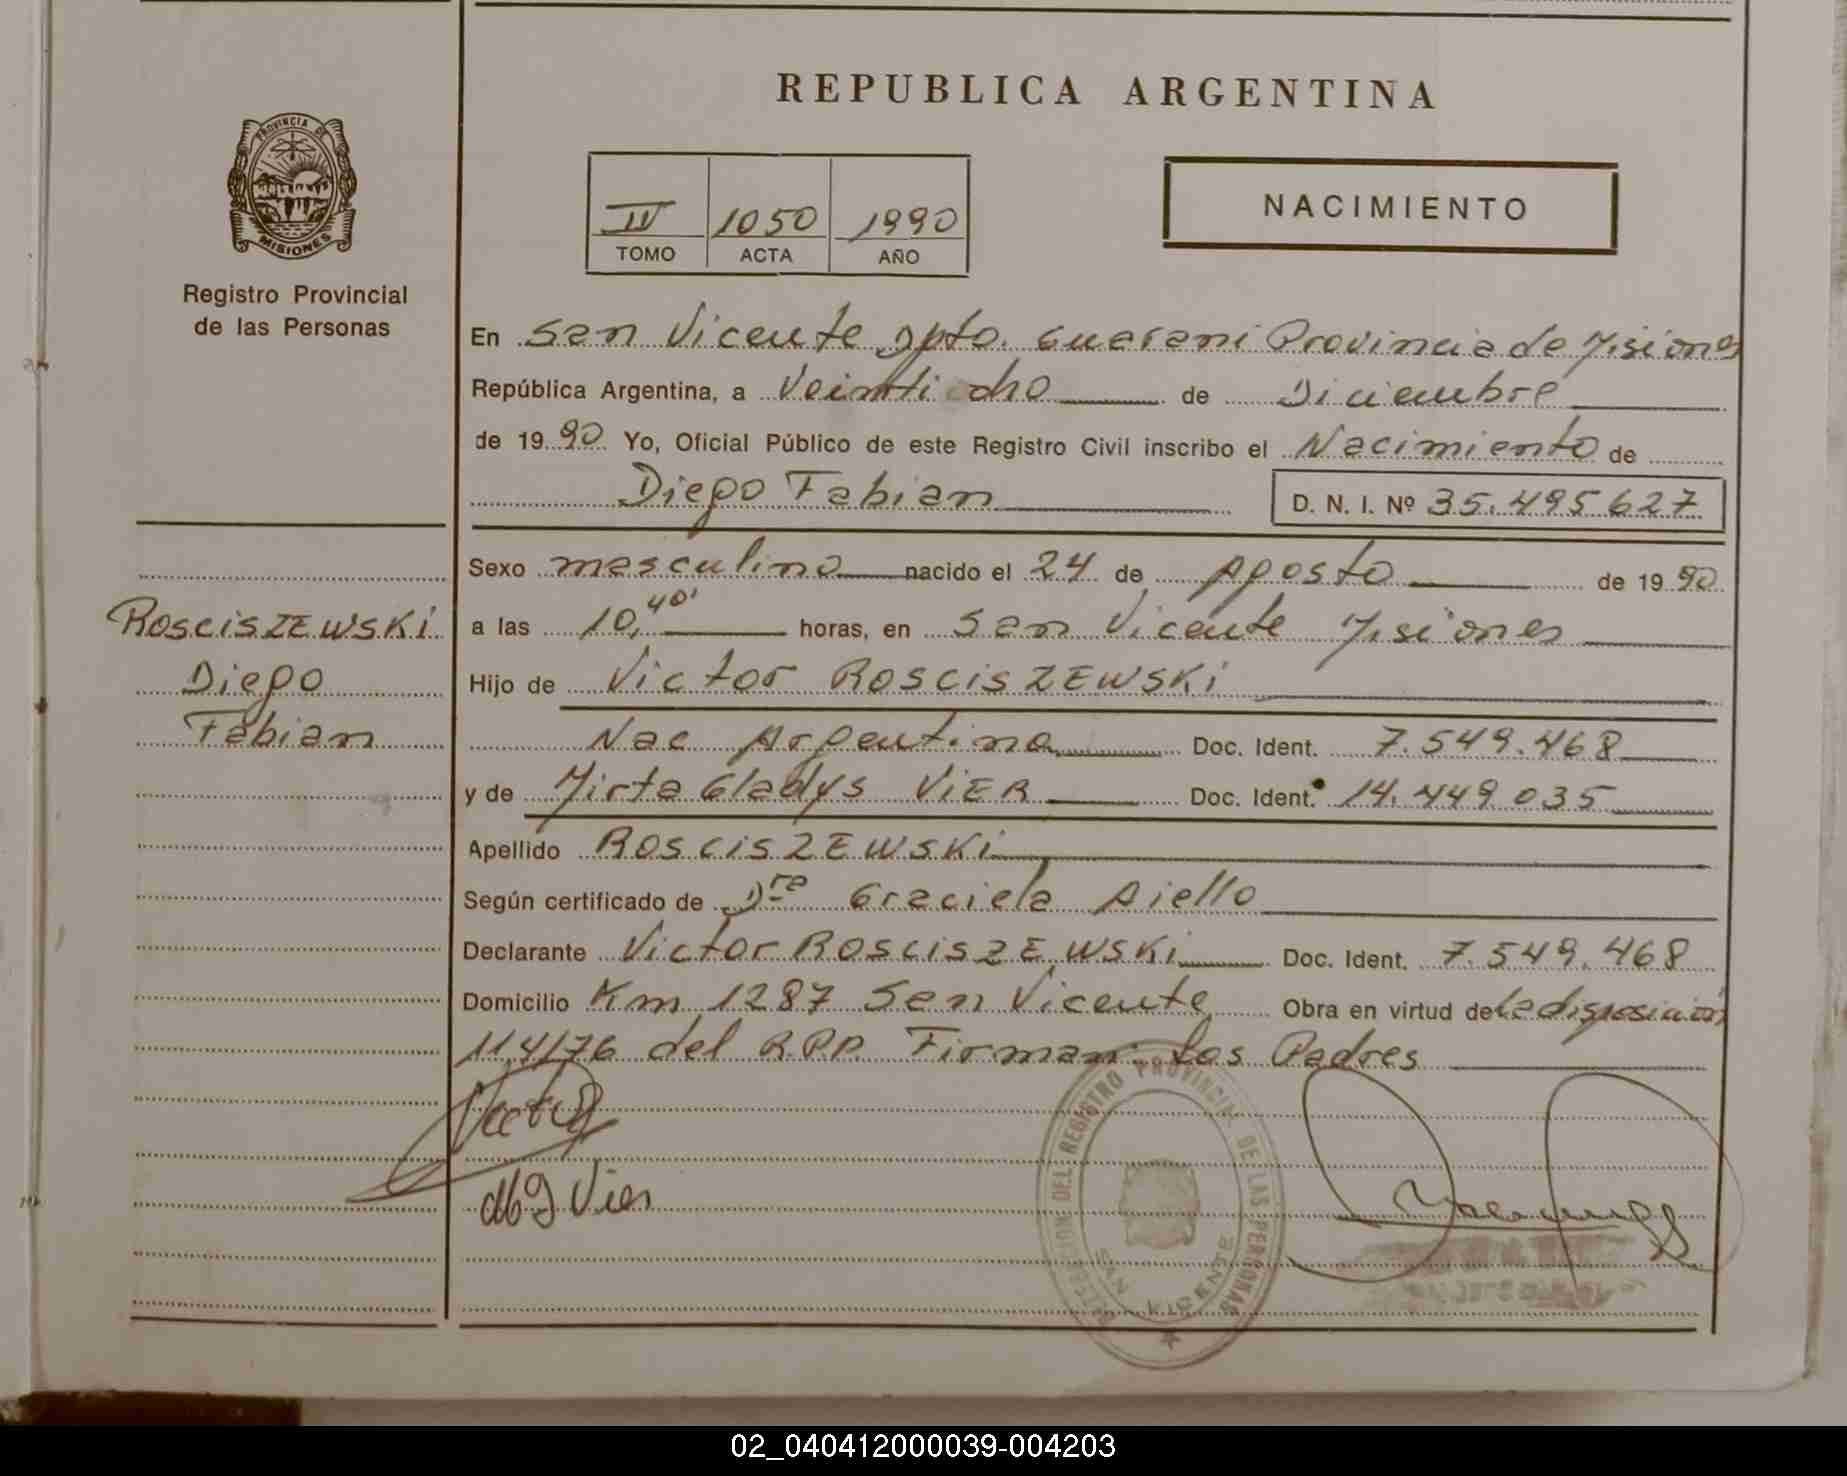 REPUBLICA ARGENTINA
PROVINCIA DE
MISIONES
Registro Provincial
de las Personas
IV 1050 1990
TOMO ACTA AÑO
NACIMIENTO
En San Vicente Dpto. Guarani Provincia de Misiones
República Argentina, a Veintiocho de Diciembre
de 1990 Yo, Oficial Público de este Registro Civil inscribo el Nacimiento de
Diego Fabian D. N. I. Nº 35.495627
Sexo masculino nacido el 24 de Agosto de 1990
a las 10,40' horas, en San Vicente Misiones
Hijo de Victor ROSCISZEWSKI
Nac Argentina Doc. Ident. 7.549.468
y de Mirta Gladys VIER Doc. Ident. 14.449035
Apellido ROSCISZEWSKI
Según certificado de Dra Graciela Aiello
Declarante Victor ROSCISZEWSKI Doc. Ident. 7.549.468
Domicilio Km 1287 San Vicente Obra en virtud de La disposición
114/76 del R.P.P. Firman: Los Padres
ROSCISZEWSKI
Diego
Fabian
MG Vier
DEL REGISTRO PROVINCIAL DE LAS PERSONAS
SAN VICENTE
02_040412000039-004203